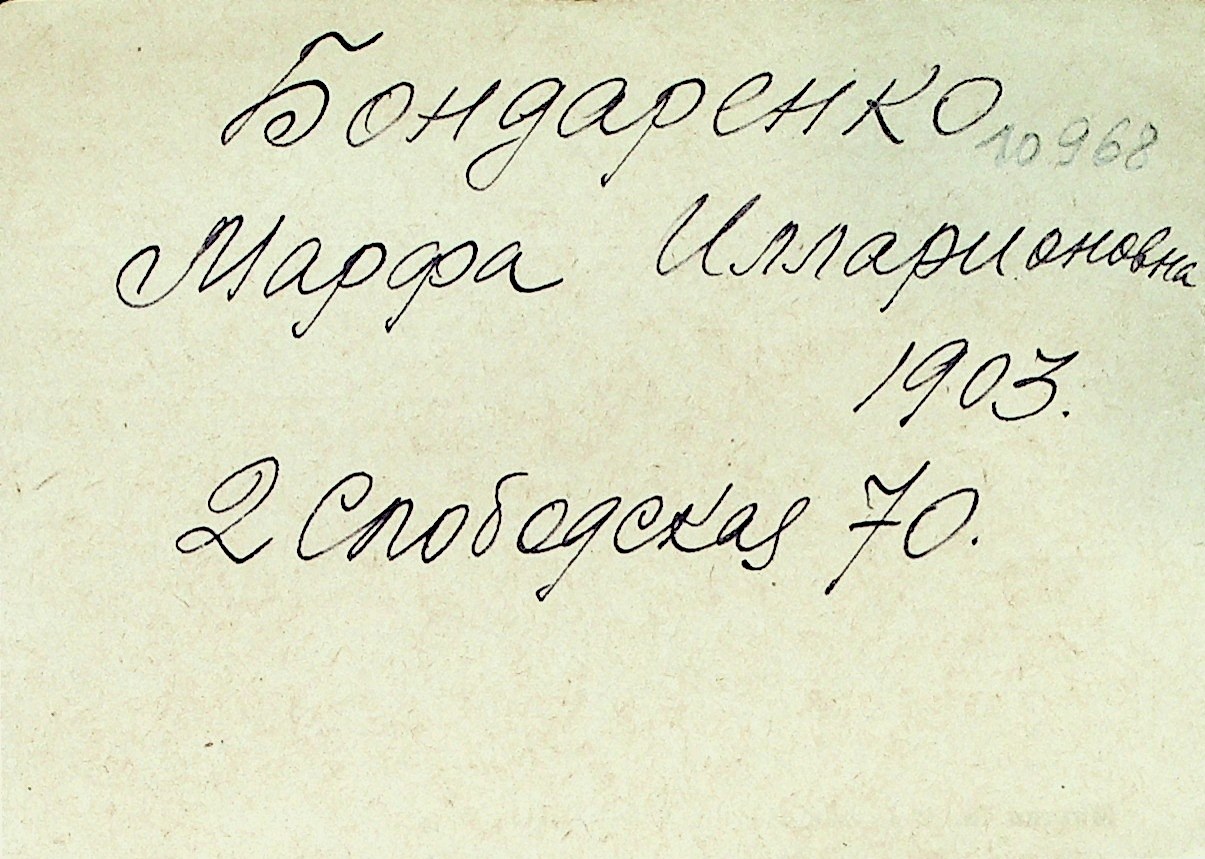 Бондаренко
10968
Марфа Илларионовна
1903.
2 Слободская 70.